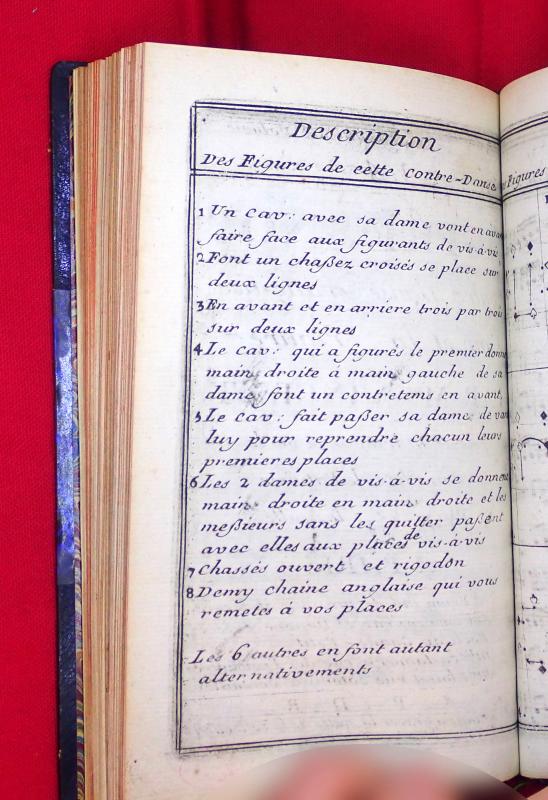 Description
Des Figures de cette Contre-Danse
1 Un Cav: avec sa dame vont en avan
faire face aux figurants de vis-á-vis
2 Font un chaßez croisés se place sur
deux lignes
3 En avant et en arriere trois par trois
sur deux lignes
4 Le Cav: qui a figurés le premier donne
main droite á main gauche de sa
dame font un contretems en avant,
5 Le Cav: fait paßer sa dame de van
luy pour reprendre chacun leurs
premieres places
6 Les 2 dames de vis-á-vis se donnent
main droite en main droite et les
meßieurs sans les quitter paßent
avec elles aux places de vis-á-vis
7 Chassés ouvert et rigodon
8 Demy chaine anglaise qui vous
remetes á vos places
Les 6 autres en font autant
alternativements
Figures